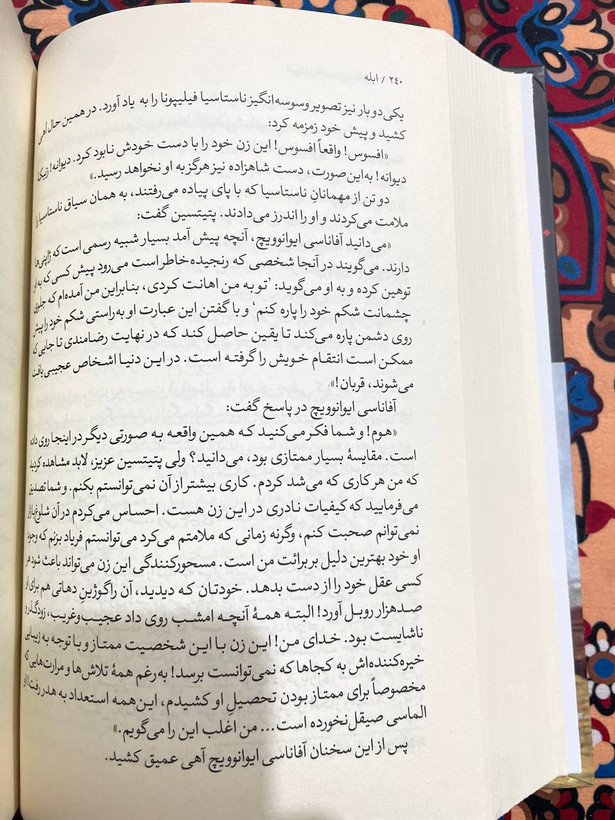 ۲۴۰ / ابله
یکی دو بار نیز تصویر وسوسه‌انگیز ناستاسیا فیلیپونا را به یاد آورد. در همین حال آهی
کشید و پیش خود زمزمه کرد:
«افسوس! واقعاً افسوس! این زن خود را با دست خودش نابود کرد. دیوانه!
دیوانه! به این صورت، دست شاهزاده نیز هرگز به او نخواهد رسید.»
دو تن از مهمانانِ ناستاسیا که با پای پیاده می‌رفتند، به همان سیاق ناستاسیا را
ملامت می‌کردند و او را اندرز می‌دادند. پتیتسین گفت:
«می‌دانید آفاناسی ایوانوویچ، آنچه پیش آمد بسیار شبیه رسمی است که ژاپنی‌ها
دارند. می‌گویند در آنجا شخصی که رنجیده خاطر است می‌رود پیش کسی که به او
توهین کرده و به او می‌گوید: ’تو به من اهانت کردی، بنابراین من آمده‌ام که جلوی
چشمانت شکم خود را پاره کنم‘ و با گفتن این عبارت او به‌راستی شکم خود را پیش
روی دشمن پاره می‌کند تا یقین حاصل کند که در نهایت رضامندی تا جایی که
ممکن است انتقام خویش را گرفته است. در این دنیا اشخاص عجیبی یافت
می‌شوند، قربان!».
آفاناسی ایوانوویچ در پاسخ گفت:
«هوم! و شما فکر می‌کنید که همین واقعه به صورتی دیگر در اینجا روی داده
است. مقایسهٔ بسیار ممتازی بود، می‌دانید؟ ولی پتیتسین عزیز، لابد مشاهده کردید
که من هر کاری که می‌شد کردم. کاری بیشتر از آن نمی‌توانستم بکنم. و شما تصدیق
می‌فرمایید که کیفیات نادری در این زن هست. احساس می‌کردم در آن شلوغ‌بازار
نمی‌توانم صحبت کنم، وگرنه زمانی که ملامتم می‌کرد می‌توانستم فریاد بزنم که وجود
او خود بهترین دلیل بر برائت من است. مسحورکنندگی این زن می‌تواند باعث شود هر
کسی عقل خود را از دست بدهد. خودتان که دیدید، آن راگوژینِ دهاتی هم برای او
صدهزار روبل آورد! البته همهٔ آنچه امشب روی داد عجیب‌وغریب، زودگذر و
ناشایست بود. خدای من! این زن با این شخصیت ممتاز و با توجه به زیبایی
خیره‌کننده‌اش به کجاها که نمی‌توانست برسد! به‌رغم همهٔ تلاش‌ها و مرارت‌هایی که
مخصوصاً برای ممتاز بودن تحصیل او کشیدم، این‌همه استعداد به هدر رفت! او
الماسی صیقل‌نخورده است... من اغلب این را می‌گویم.»
پس از این سخنان آفاناسی ایوانوویچ آهی عمیق کشید.